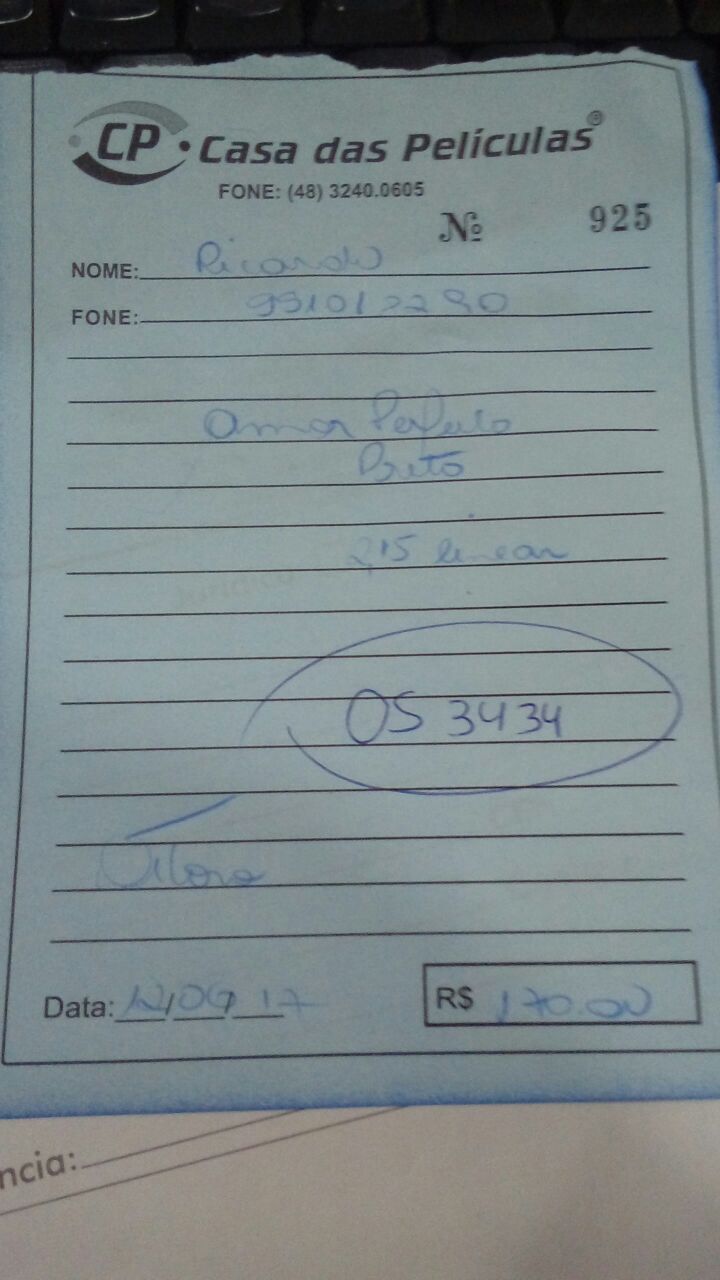 CP Casa das Películas®
FONE: (48) 3240.0605
Nº 925
NOME: Ricardo
FONE:
Amor Perfeito
Preto
2,15 linear
OS 3434
Data: 12/09/17
R$ 170.00
ncia: